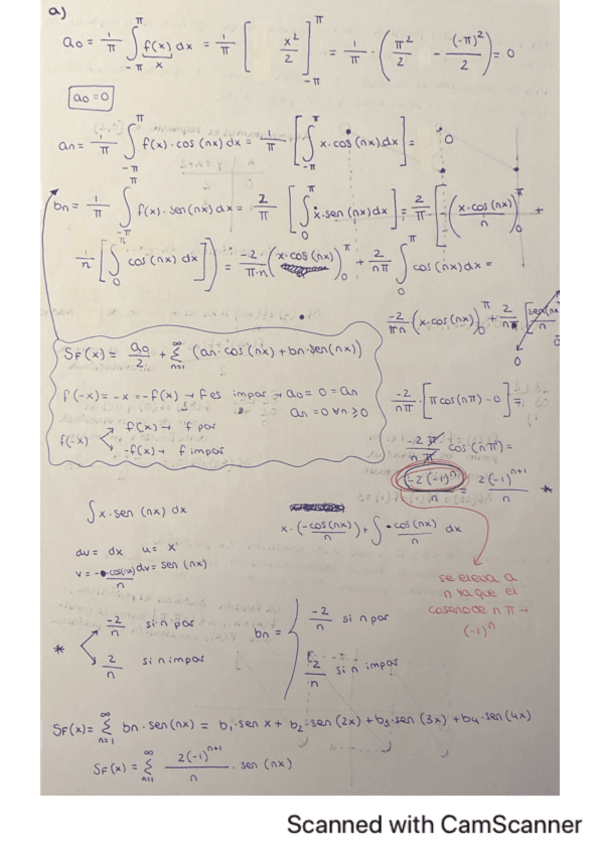 a)
a₀ = 1/π ∫_{-π}^{π} f(x) dx = 1/π [x²/2]_{-π}^{π} = 1/π · (π²/2 - (-π)²/2) = 0
x
a₀ = 0
an = 1/π ∫_{-π}^{π} f(x) · cos (nx) dx = 1/π · [∫_{-π}^{π} x · cos (nx) dx] = 0
bn = 1/π ∫_{-π}^{π} f(x) · sen (nx) dx = 2/π [∫_{0}^{π} x · sen (nx) dx] = 2/π [-(x · cos (nx)/n)_{0}^{π} +
1/n [∫_{0}^{π} cos (nx) dx]) = -2/π·n (x · cos (nx))_{0}^{π} + 2/nπ ∫_{0}^{π} cos (nx) dx =
-2/πn (x · cos (nx))_{0}^{π} + 2/nπ [sen(nx)/n
0
SF(x) = a₀/2 + Σ_{n=1}^{∞} (an · cos (nx) + bn · sen (nx))
f(-x) = -x = -f(x) → f es impar → a₀ = 0 = an
an = 0 ∀n ≥ 0
f(-x)
f(x) → f par
-f(x) → f impar
-2/nπ · [π cos (nπ) - 0] =
-2π/nπ cos (nπ) =
-2(-1)ⁿ/n = 2(-1)ⁿ⁺¹/n *
∫ x · sen (nx) dx
x · (-cos(nx)/n) + ∫ cos(nx)/n dx
du = dx u = x
v = -cos(nx)/n dv = sen (nx)
se eleva a
n ya que el
coseno de n π →
(-1)ⁿ
*
-2/n si n par
2/n si n impar
bn =
-2/n si n par
2/n si n impar
SF(x) = Σ_{n=1}^{∞} bn · sen (nx) = b₁ · sen x + b₂ · sen (2x) + b₃ · sen (3x) + b₄ · sen (4x)
SF(x) = Σ_{n=1}^{∞} 2(-1)ⁿ⁺¹/n · sen (nx)
Scanned with CamScanner